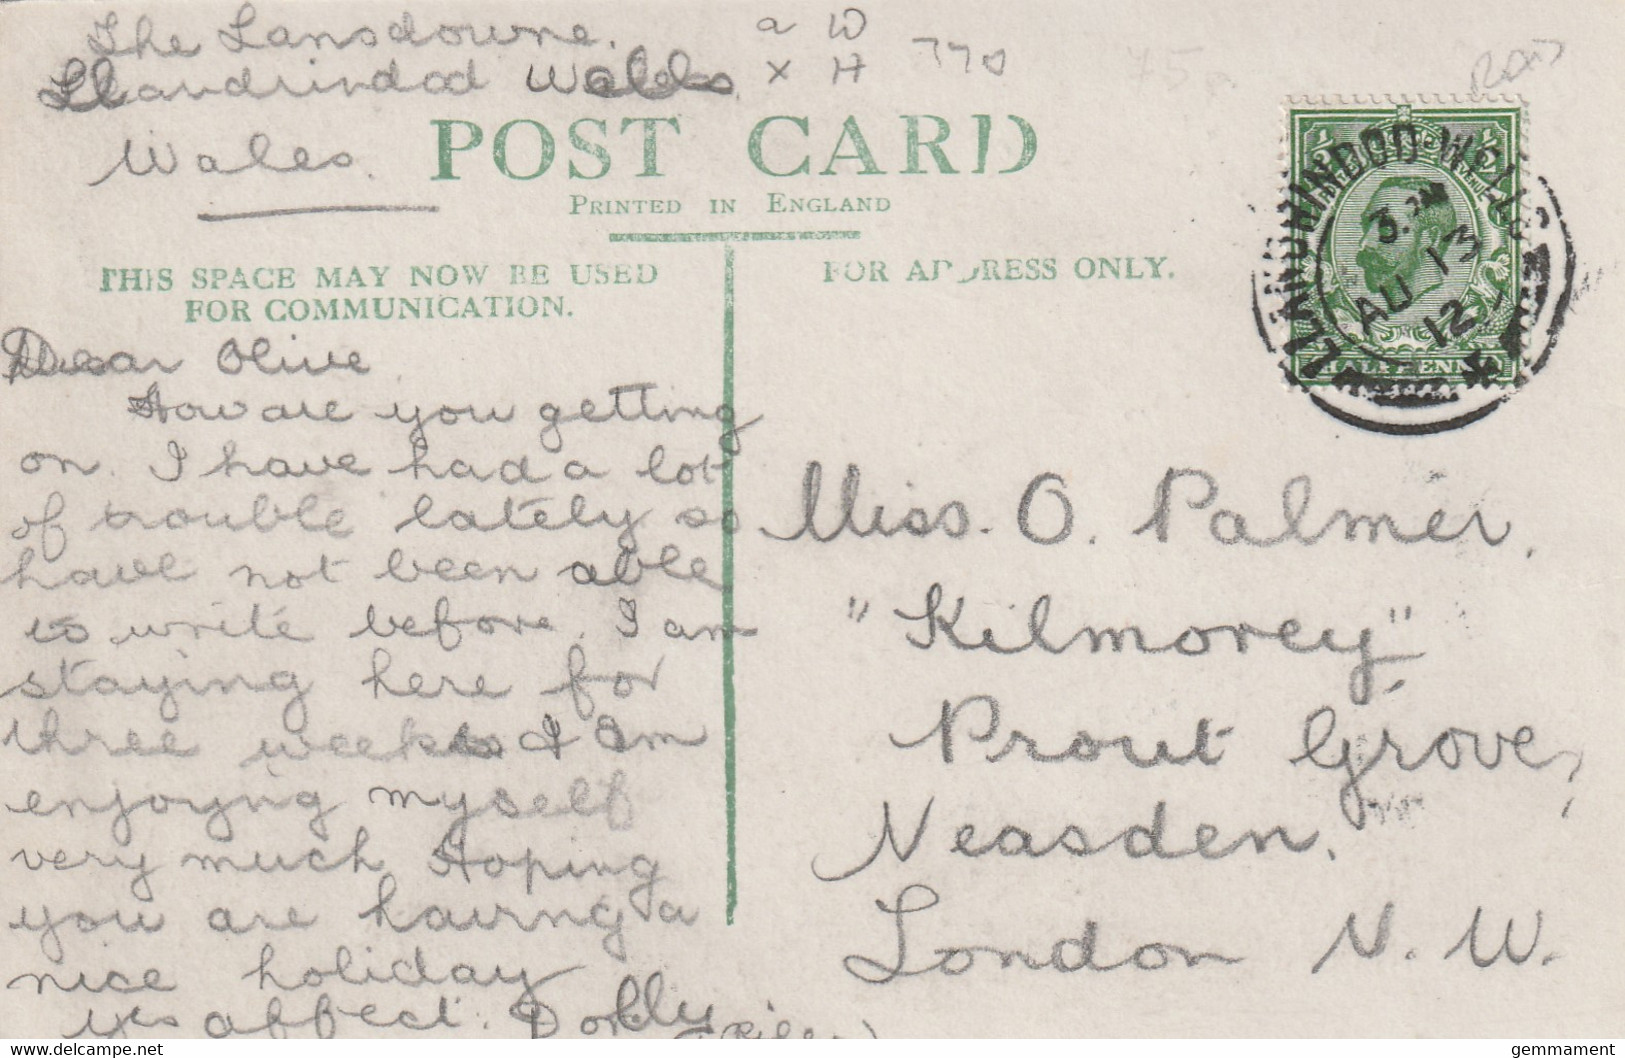 The Lansdowne.
Llandrindod Wells
Wales.
a W
x H
770
POST CARD
PRINTED IN ENGLAND
THIS SPACE MAY NOW BE USED
FOR COMMUNICATION.
FOR ADDRESS ONLY.
LLANDRINDOD WELLS
3. PM
AU 13
12
HALFPENNY
Dear Olive
How are you getting
on. I have had a lot
of trouble lately so
have not been able
to write before. I am
staying here for
three weeks & I am
enjoying myself
very much Hoping
you are having a
nice holiday
yrs affect. Dolly
Miss. O. Palmer.
"Kilmorey",
Prout Grove,
Neasden.
London N. W.
gemmament